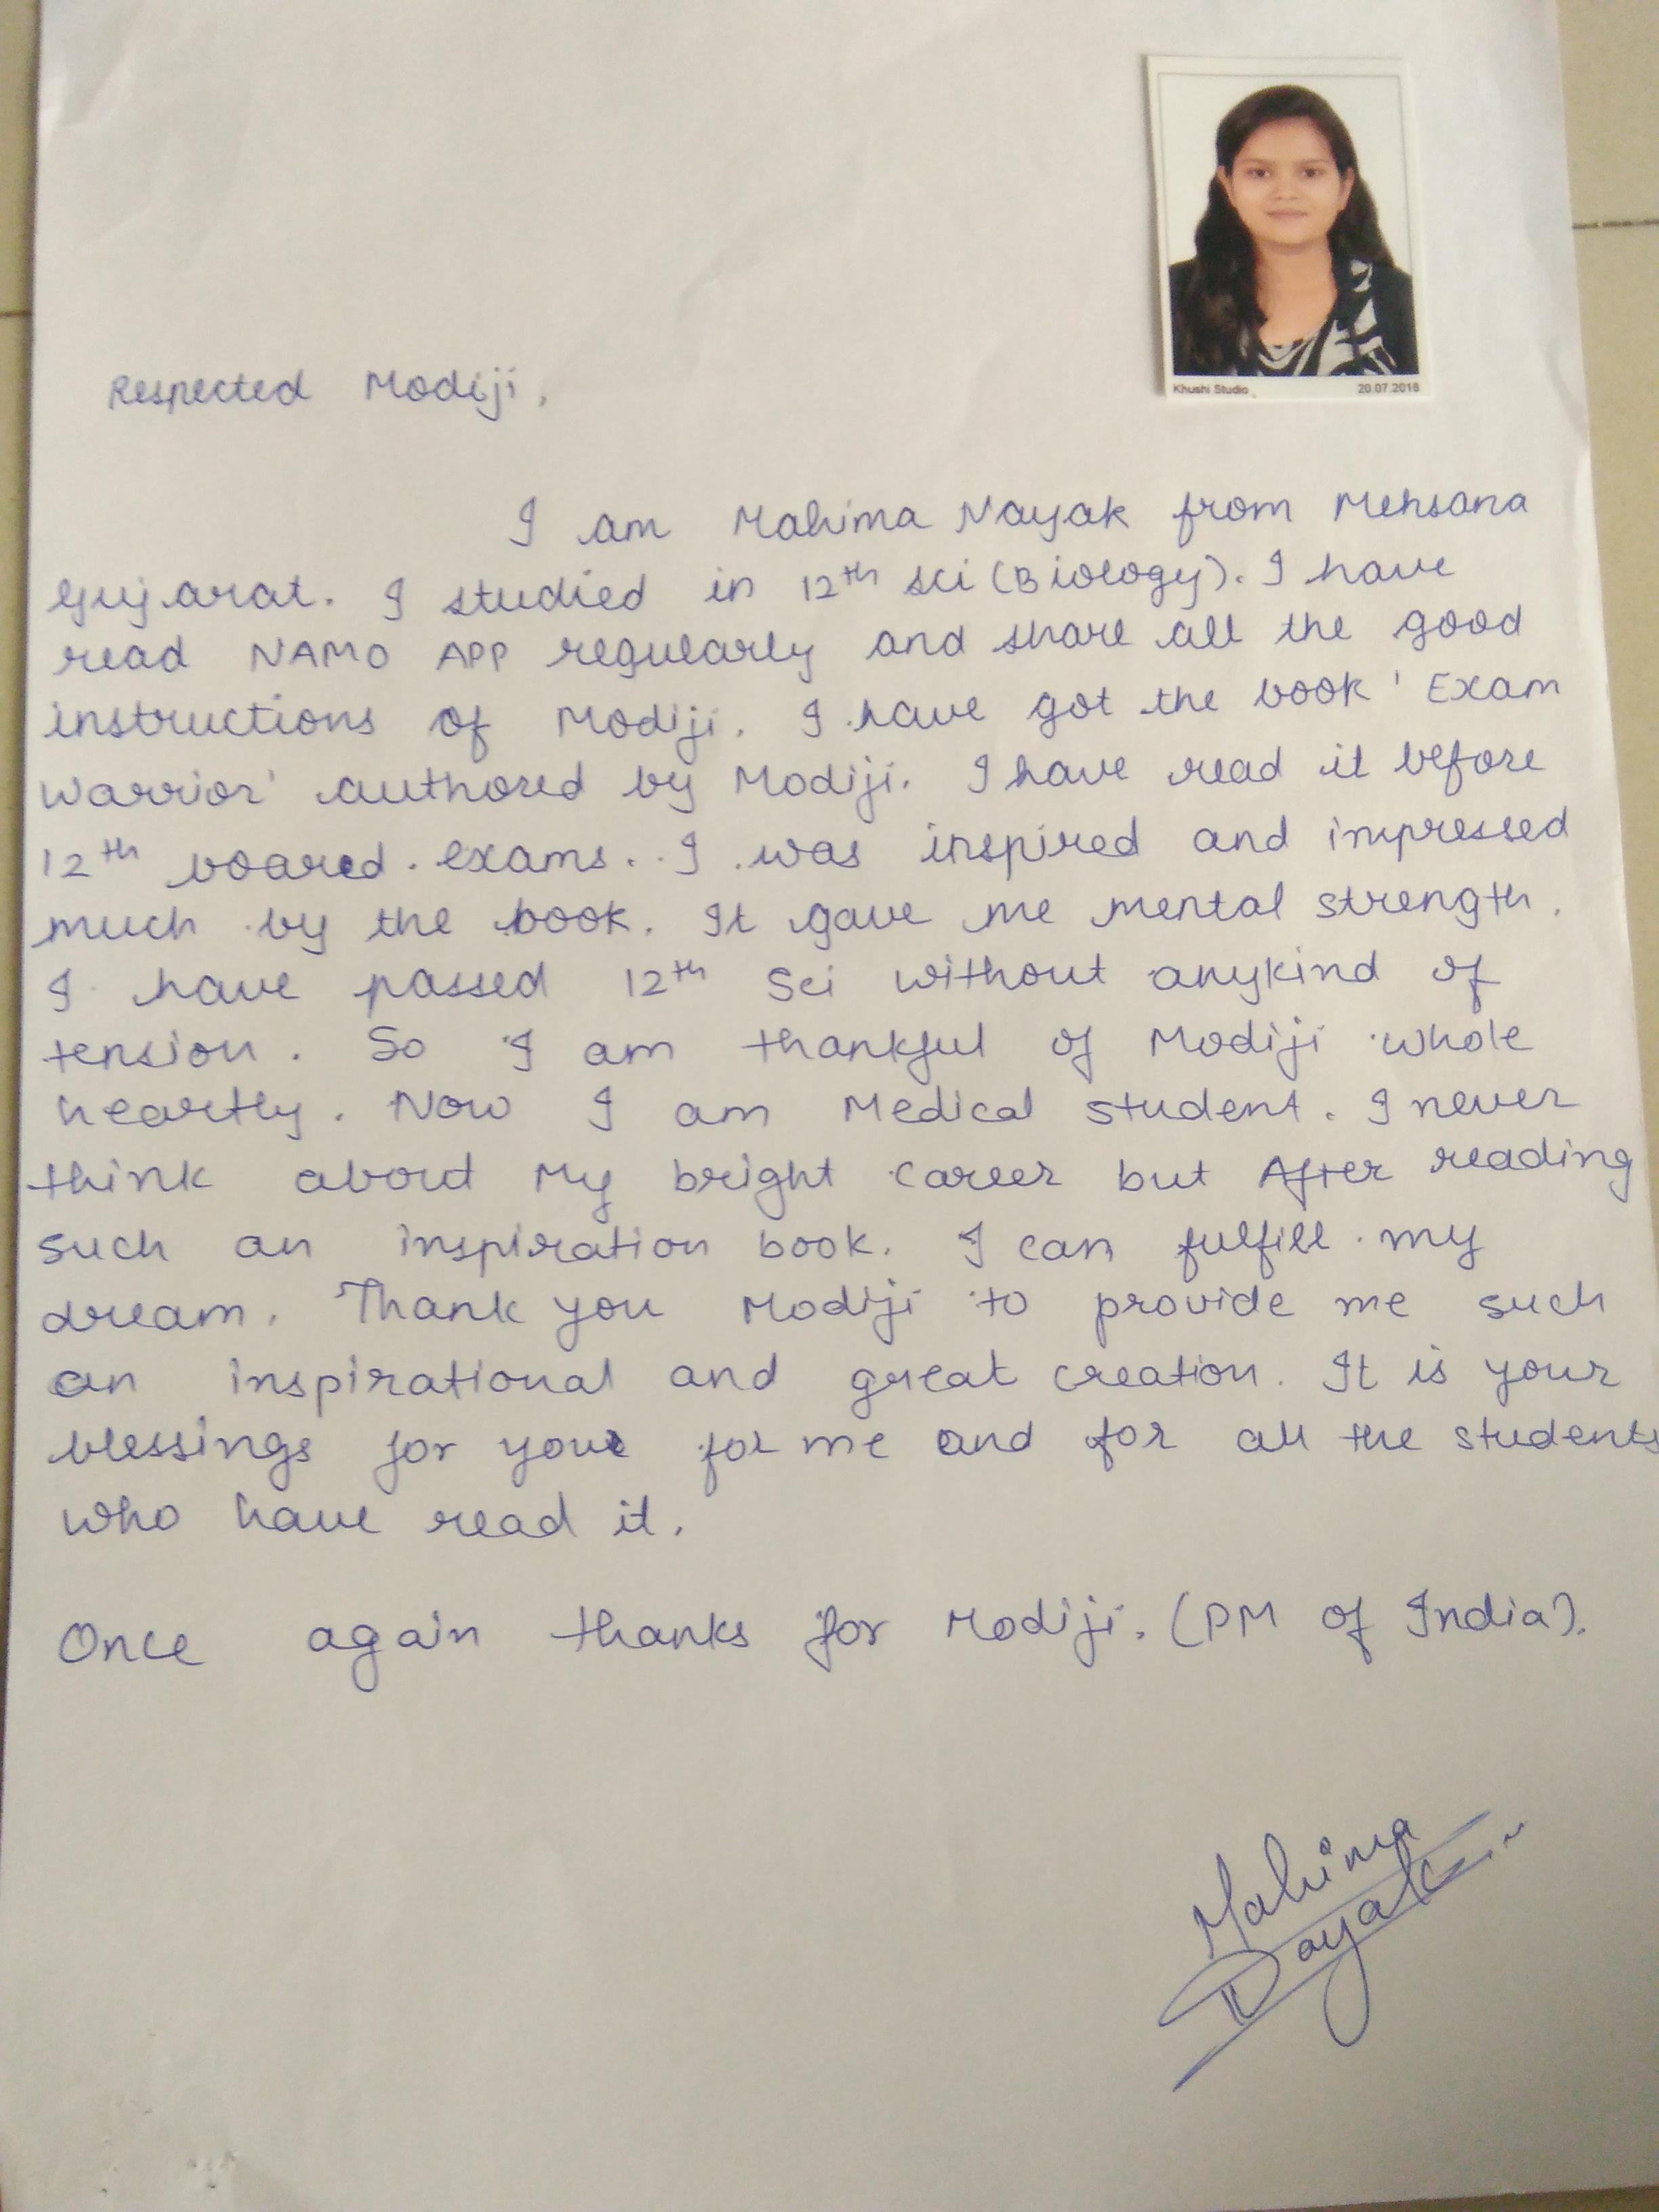 Khushi Studio 20.07.2018
Respected Modiji,
I am Mahima Nayak from Mehsana
Gujarat. I studied in 12th sci (Biology). I have
read NAMO APP regularly and share all the good
instructions of Modiji. I have got the book ' Exam
Warrior' authored by Modiji. I have read it before
12th board exams. I was inspired and impressed
much by the book. It gave me mental strength.
I have passed 12th Sci without anykind of
tension. So I am thankful of Modiji whole
heartly. Now I am Medical student. I never
think about My bright career but After reading
such an inspiration book. I can fulfill my
dream. Thank you Modiji to provide me such
an inspirational and great creation. It is your
blessings for your for me and for all the students
who have read it.
Once again thanks for Modiji. (PM of India).
Mahima
Nayak